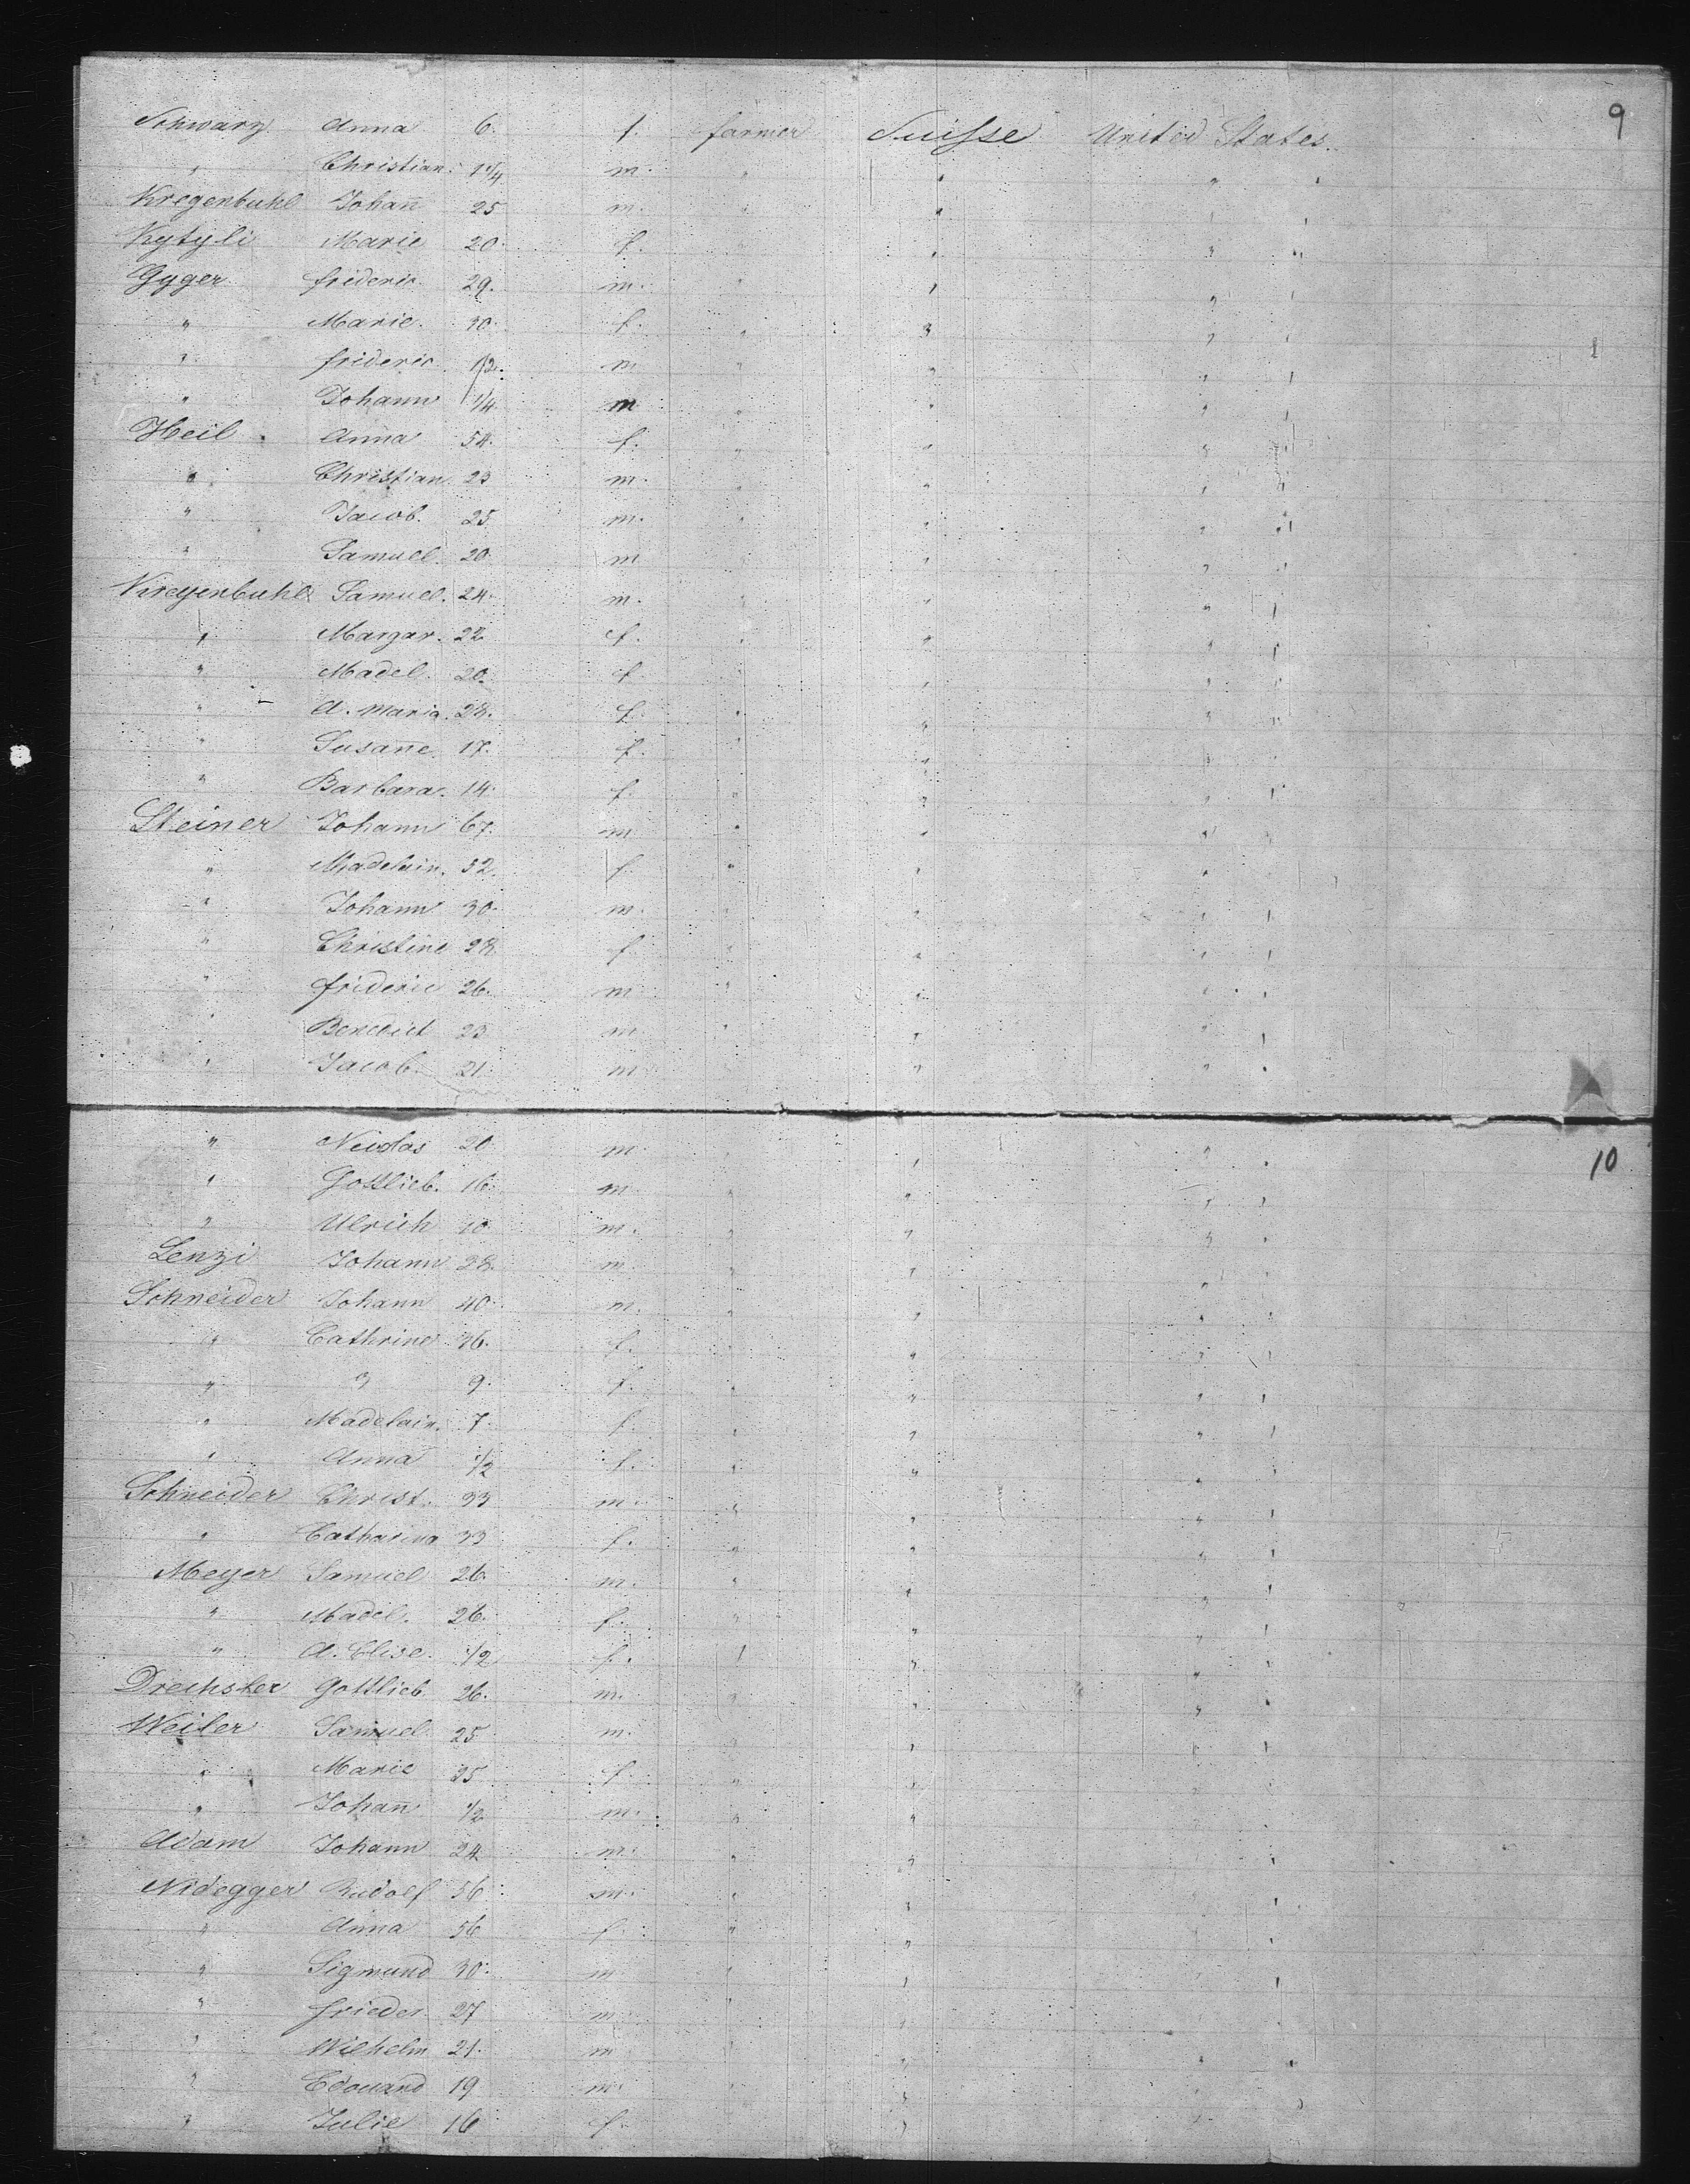 9
Schwarz Anna 6. f. farmer Suisse United States.
" Christian 1 1/4 m. " " " "
Kregenbuhl Johan̄ 25 m. " " " "
Kytyli Marie 20. f. " " " "
Gyger frideric. 29. m. " " " "
" Marie. 30. f. " " " "
" frideric. 1/2. m " " " "
" Johann 1/4 m " " " "
Heil Anna 54. f. " " " "
" Christian 23 m. " " " "
" Jacob. 25 m. " " " "
" Samuel. 20. m " " " "
Kreyenbuhl Samuel. 24. m. " " " "
" Margar. 22 f. " " " "
" Madel. 20. f " " " "
" A. Maria. 28. f. " " " "
" Susan̄e 17. f. " " " "
" Barbara. 14. f. " " " "
Steiner Johann 67. m " " " "
" Madelain. 52. f. " " "
" Johann 30. m. " " " "
" Christine 28 f " " " "
" frideric 26. m " " " "
" Benedict 23 m. " " " "
" Jacob. 21. m " " "
10
" Nicolas 20 m " " " "
" Gottlieb. 16. m " " " "
" Ulrich 10. m. " " " "
Lenzi Johann 28. m. " " " "
Schneider Johann 40. m. " " " "
" Cathrine 36. f. " " " "
" " 9. f. " " " "
" Madelain. 7. f. " " " "
" Anna 1/2 f. " " " "
Schneider Christ. 33 m. " " " "
" Catharina 33 f. " " " "
Meyer Samuel 26. m. " " " "
" Madel. 26. f. " " " "
" A. Elise. 1/2 f. " " " "
Drechsler Gottlieb. 26. m. " " " "
Weiler Samuel 25 m. " " " "
" Marie 25 f. " " " "
" Johan̄ 1/2 m. " " " "
Adam Johann 24 m. " " " "
Nidegger Rudolf 56 m. " " " "
" Anna 56 f. " " " "
" Sigmund 30. m " " " "
" frieder. 27 m " " " "
" Wilhelm 21. m " " " "
" Edouard 19 m. " " " "
" Julie 16 f. " "